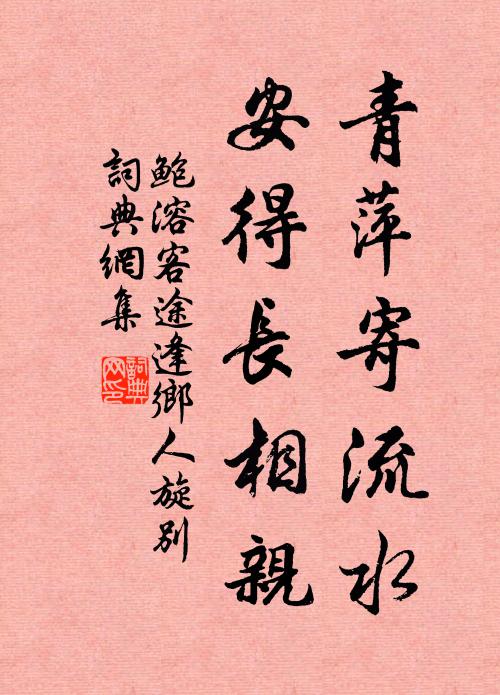 青萍寄流水
安得長相親
鲍溶客途逢鄉人旋別
詞典網集
詞典網印